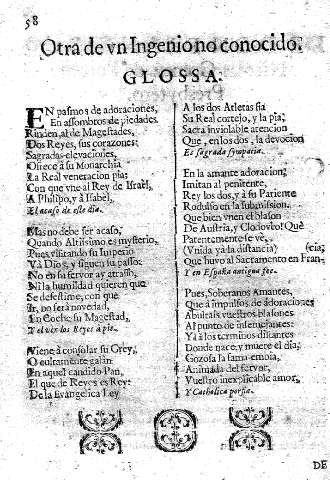 58
Otra de vn Ingenio no conocido.
GLOSSA.
EN pasmos de adoraciones,
En assombros de piedades.
Rinden, al de Magestades,
Dos Reyes, sus corazones:
Sagradas elevaciones,
Ofrece à su Monarchia
La Real veneracion pia;
Con que vne al Rey de Israèl,
A Philipo, y à Isabèl,
El acaso de este dia.
Mas no debe ser acaso,
Quando Altissimo es mysterio,
Pues, visitando su Imperio
Và Dios, y siguen su passo:
No en su fervor ay atraso,
Ni la humildad quieren que
Se desestime, con que
Ir, no serà novedad,
En Coche, su Magestad,
Y el vèr los Reyes à pie.
Viene à consolar su Grey,
Ocultamente galan
En aquel candido Pan,
El que de Reyes es Rey:
De la Evangelica Ley
A los dos Atletas fia
Su Real cortejo, y la pia,
Sacra inviolable atencion
Que, en los dos, la devocion
Es sagrada sympatia.
En la amante adoracion,
Imitan al penitente,
Rey los dos, y à su Pariente
Rodulfo en la submission.
Que bien vnen el blason
De Austria, y Clodovèo! Què
Patentemente se vè,
(Vnida yà la distancia) (cia,
Que huvo al Sacramento en Fran-
Y en España antigua fee.
Pues, Soberanos Amantes,
Que à impulsos de adoraciones
Abultais vuestros blasones
Al punto de
Yà à los terminos distantes
Donde nace, y muere el dia,
Gozosa la fama embia,
Animada del fervor,
Vuestro inexplicable amor,
Y Catholica porfia.
DE